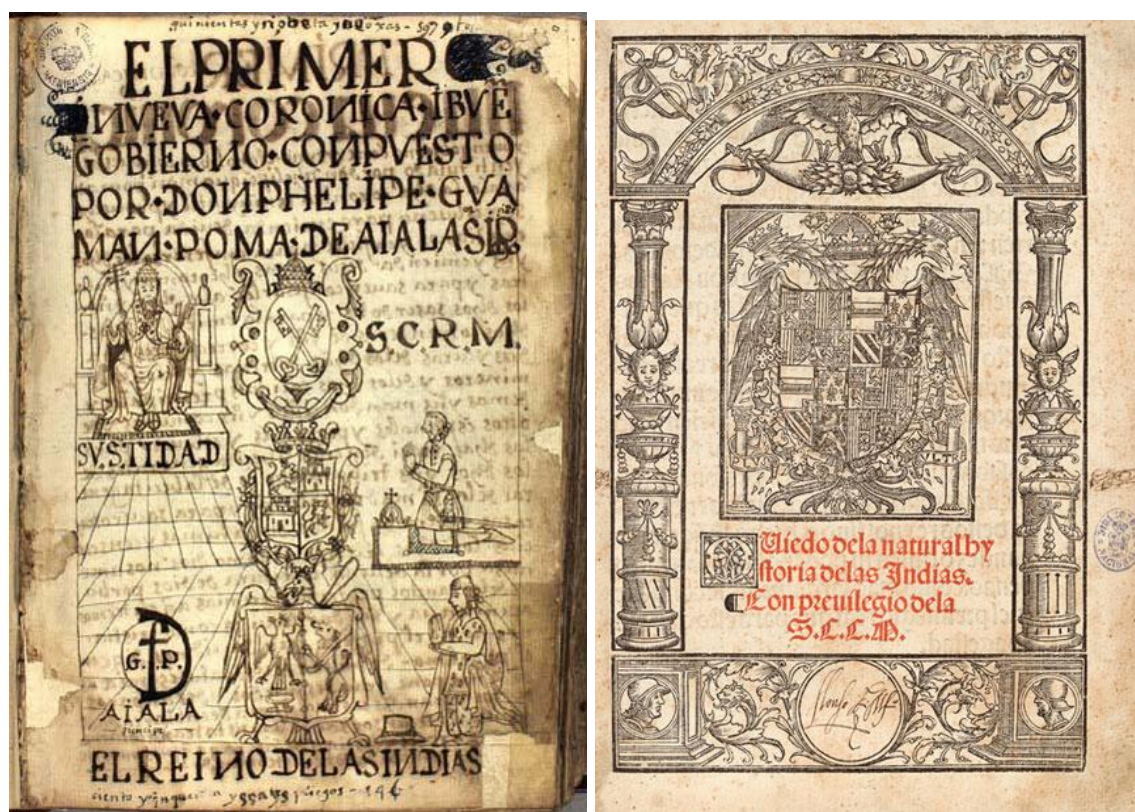 quinientas y nobeta y ojas - 597
EL PRIMER
NVEVA·CORONICA·IBVE
GOBIERNO·CONPVESTO
POR·DONPHELIPE·GVA
MAN·POMA·DEAIALA S
S.C.R.M.
SV.S.TIDAD
G. P.
AIALA
principe
EL REINO DELAS INDIAS
ciento y pliegos - 146
Ouiedo dela natural hy
storia delas Indias.
Con preuilegio dela
S.C.C.M.